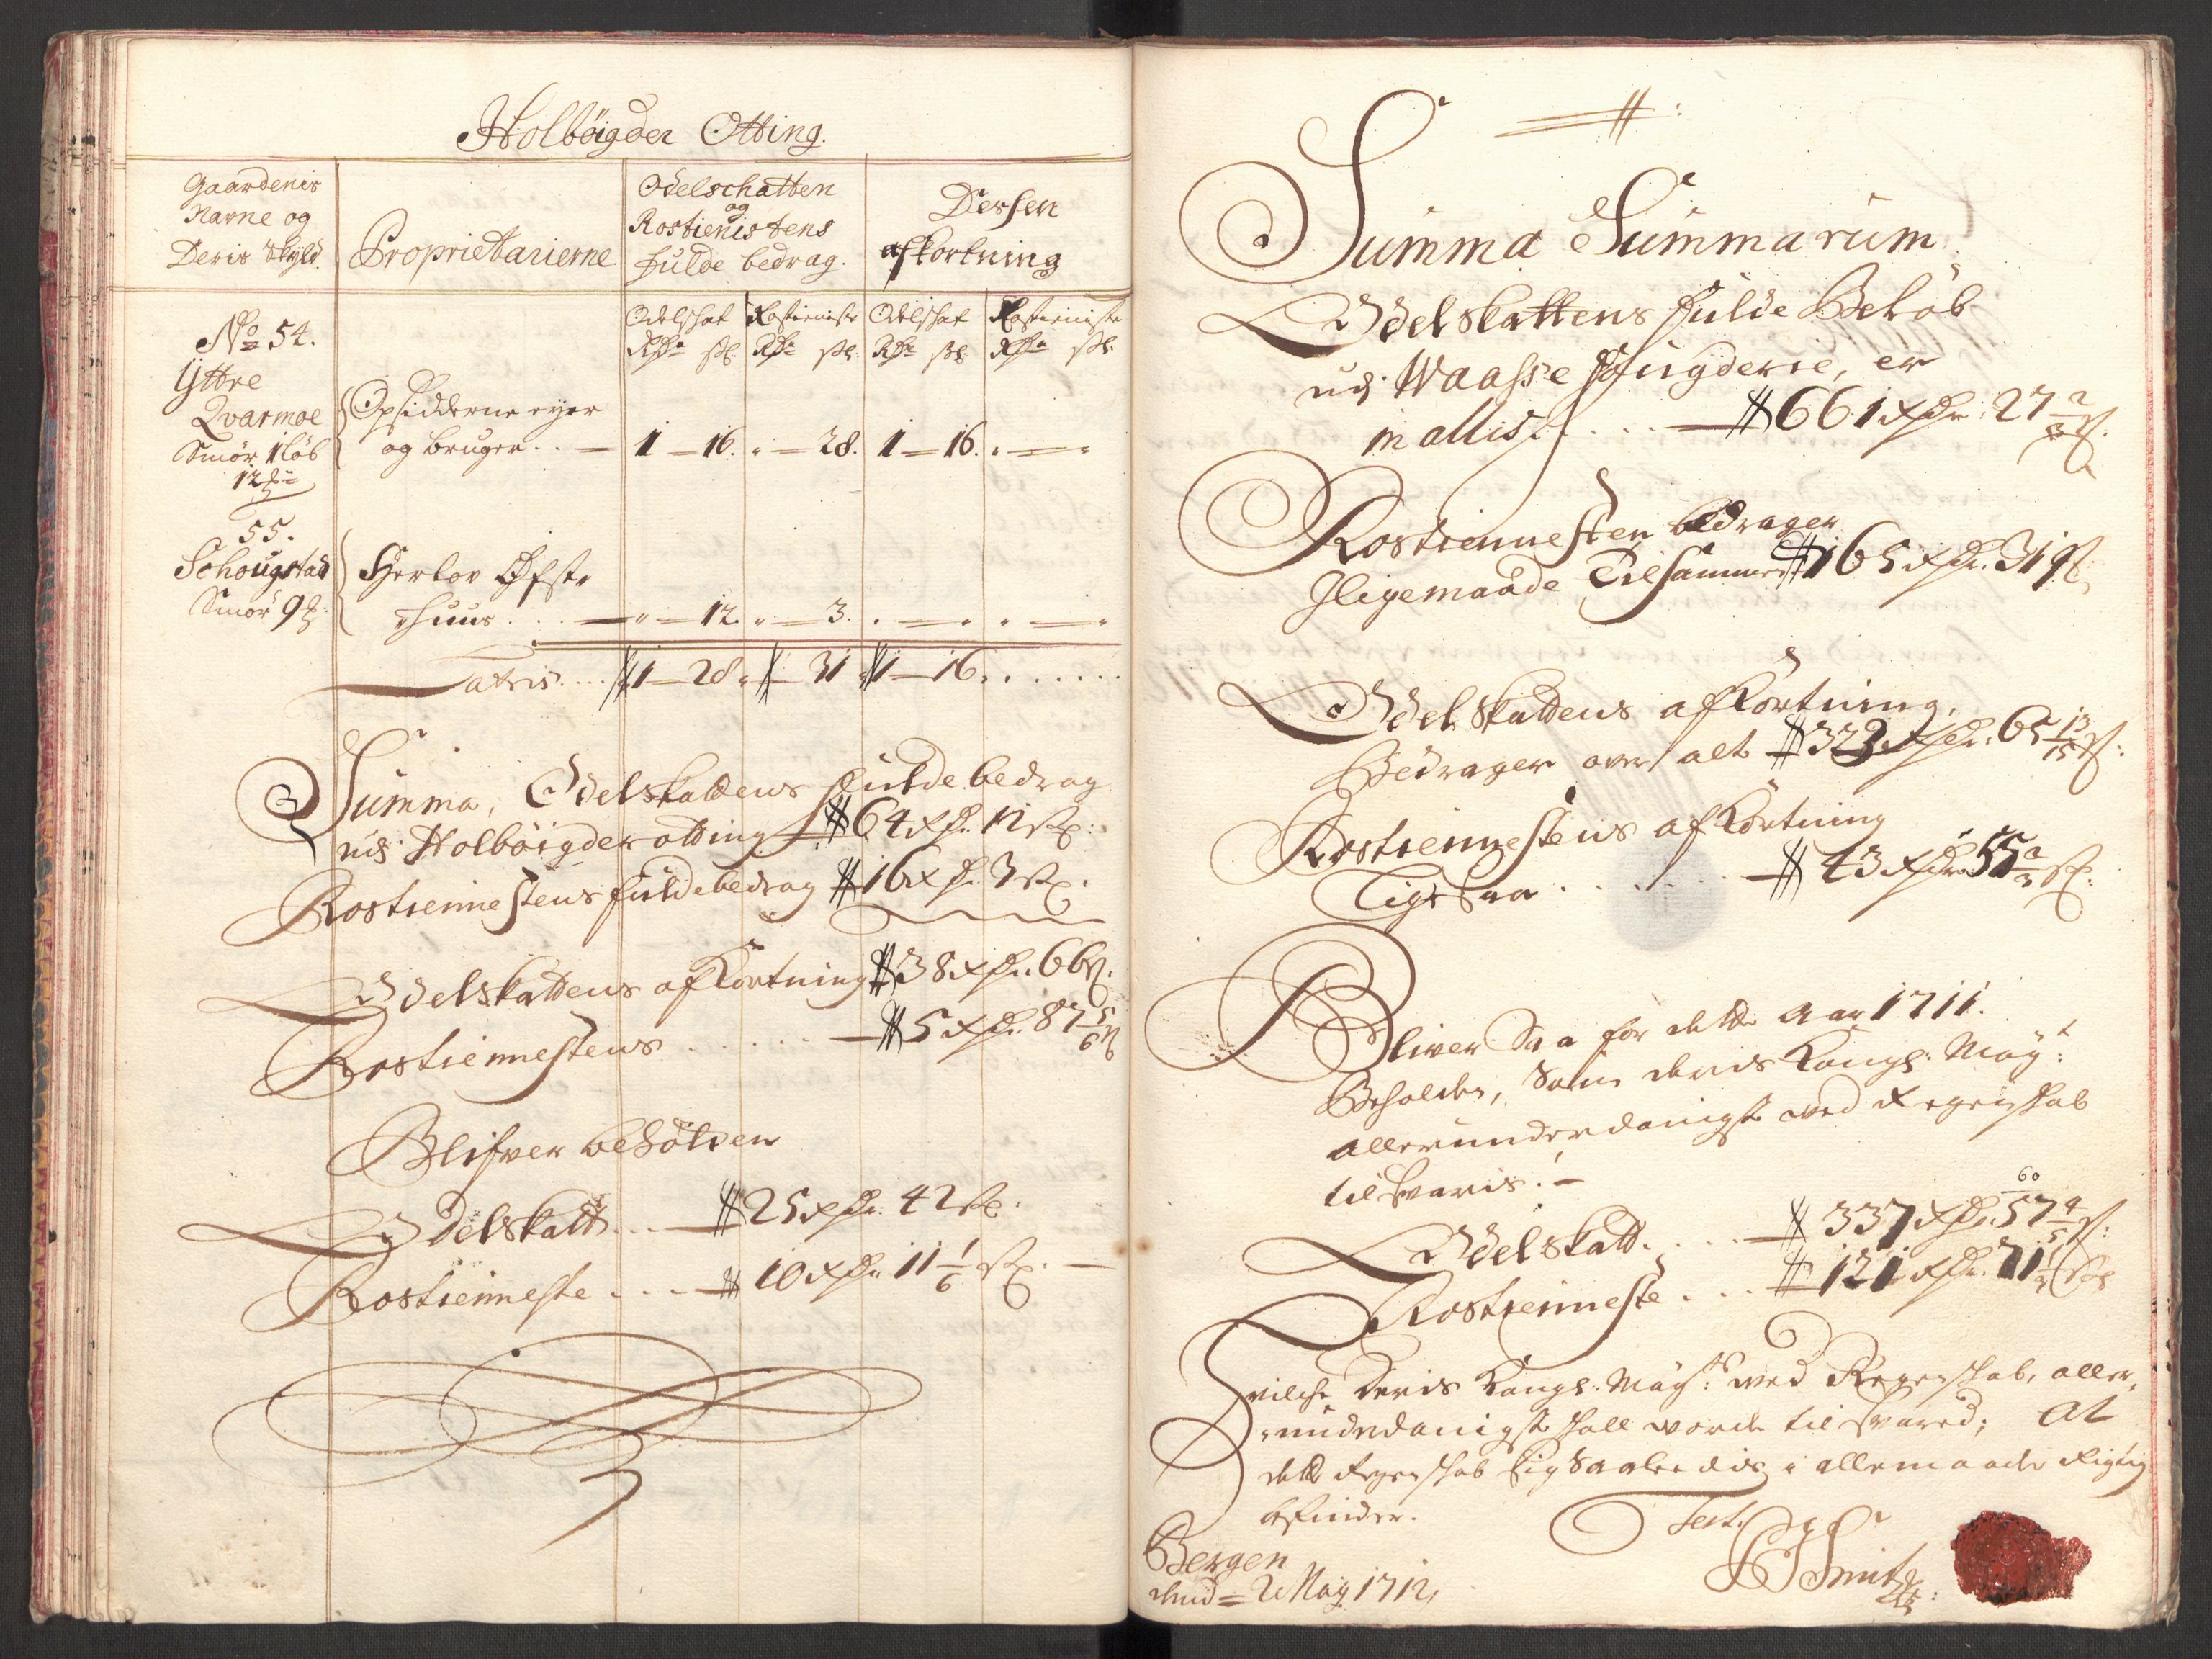 Holbøigder Otting.
Gaardenis
Navne og
Deris Skyld.
Proprietarierne
Odelschatten
og
Rostienistens
fulde bedrag.
Dessen
afkortning
Odelschat Rostieniste Odelschat Rostieniste
Rdr ss. Rdr ss. Rdr ss. Rdr ss.
No 54.
Yttre
Qvarmoe
Smør 1 løb
12
Opsidderne eyer
og bruger . . — 1 — 16. " — 28. 1 — 16. " — "
55.
Schougstad
Smør 9
Herlov Øfste
Huus . . . — " — 12. " — 3. " — " " — "
Latris . . . 1 — 28 " — 31 1 — 16 . . . . . .
Summa, Odelskattens fulde bedrag
udj Holbøigder otting — 64 Rdr. 12 ss.
Rostiennestens fulde bedrag 16 Rdr. 3 ss.
Odelskattens afkortning 38 Rdr. 66 ss.
Rostiennestens . . . . . — 5 Rdr. 87 5/6 ss
Blifver beholden
Odelskatt . . . — 25 Rdr. 42 ss.
Rostienneste . . . — 10 Rdr. 11 1/6 ss. —
Summa Summarum
Odelskattens fulde Beløb
udj Waasse fougderie, er
in allis . . . . — 661 Rdr. 27 2/3 ss.
Rostiennesten bedrager
Jligemaade Tilsammen 165 Rdr. 31 ss.
Odelskattens afkortning,
Bedrager over alt 323 Rdr. 65 13/15 ss.
Rostiennestens afkortning
Lige Saa . . . . . . — 43 Rdr. 55 2/3 ss.
Bliver Saa for dette Aar 1711.
Beholden, Som deris Kongl: May:t
allerunderdanigst ved Regenskab
til Svaris. —
60
Odelskatt . . . . — 337 Rdr. 57 4/5 ss.
Rostienneste . . . 121 Rdr. 71 1/3 ss
Hvilche Deris Kongl: May:t ved Regenskab, aller,
underdanigst skall vorde til svared; At
dette Regenskab sig Saaledis i allemaade Rigtig
befinder.
Test.
Bergen
dend = 2 May 1712,
Smit